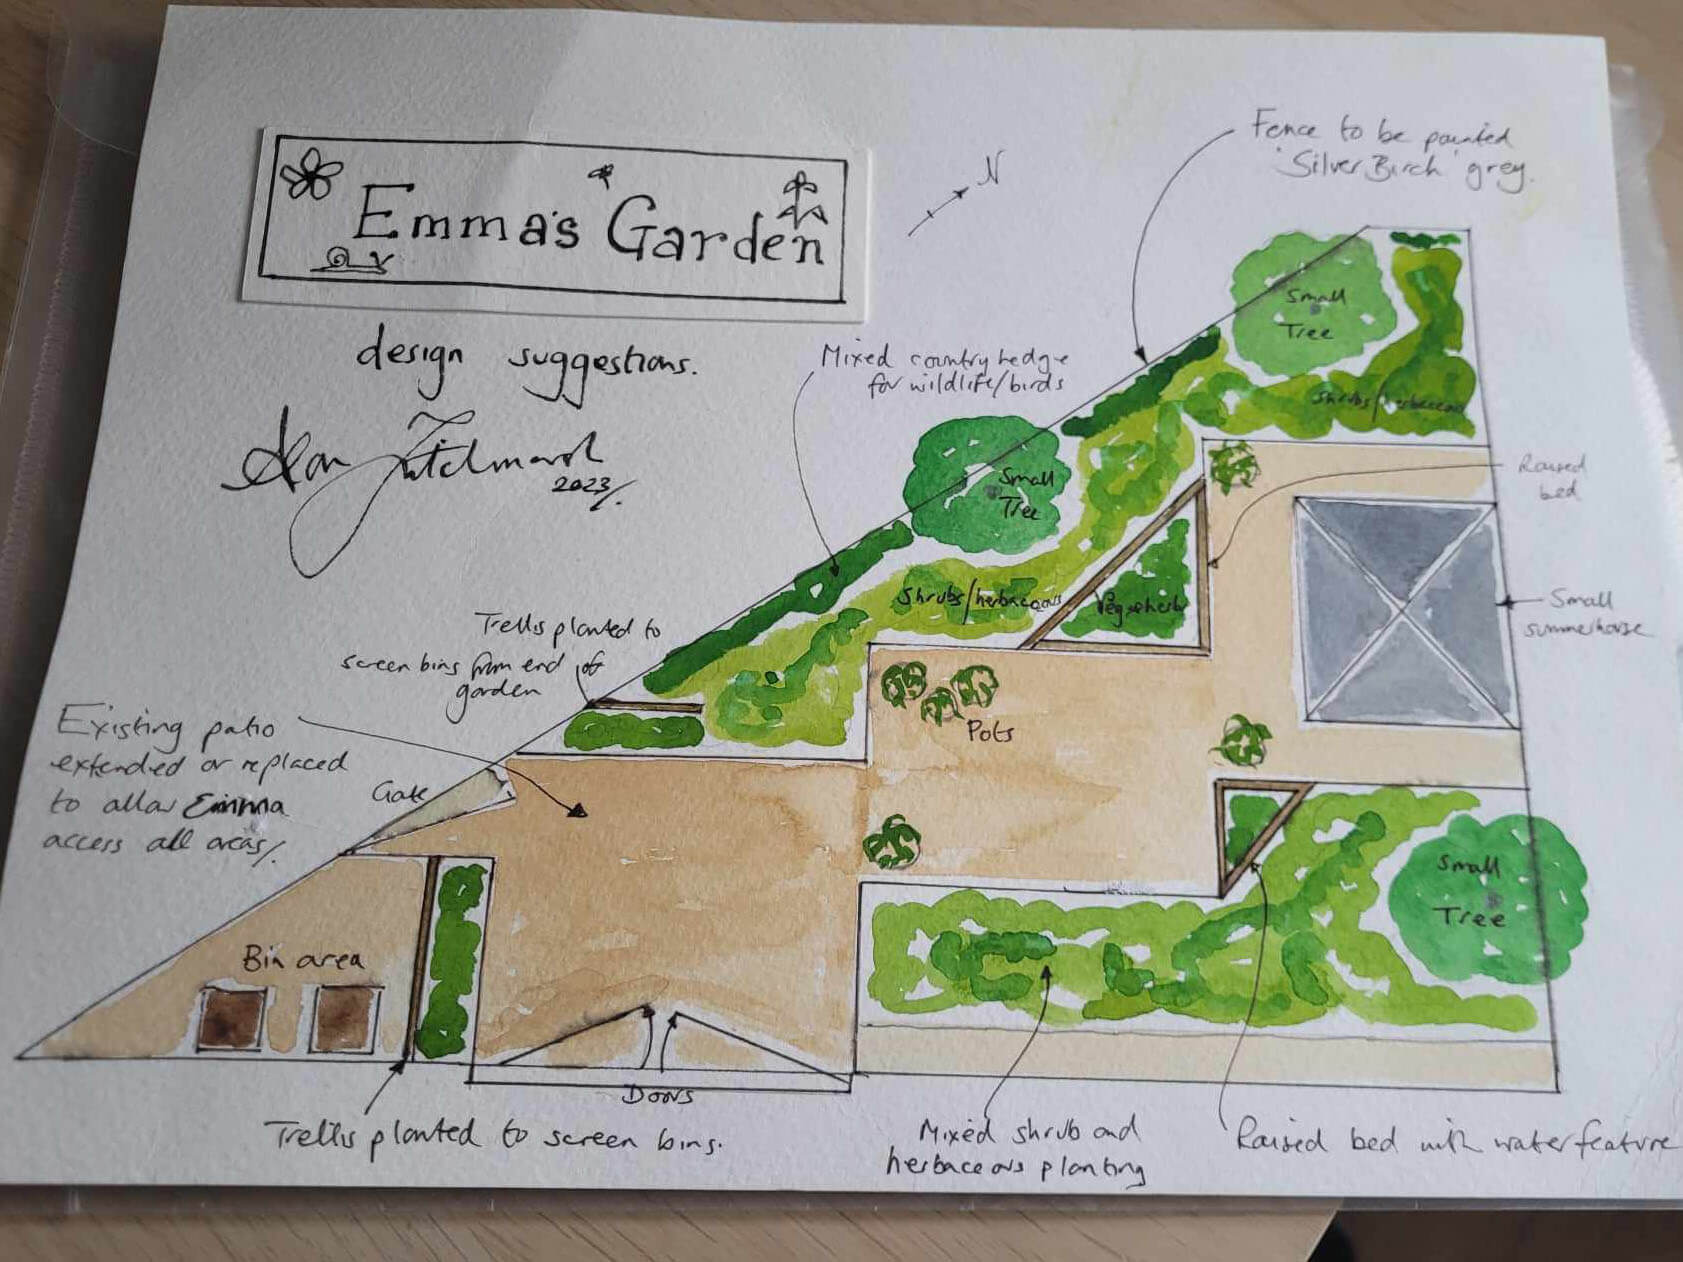 Emma's Garden
design suggestions.
Alan Titchmarsh
2023/.
N
Fence to be painted
'Silver Birch' grey.
Mixed country hedge
for wildlife/birds
Small
Tree
Shrubs/herbaceous
Small
Tree
Raised
bed
Shrubs/herbaceous
Veg & herbs
Small
summerhouse
Trellis planted to
screen bins from end of
garden
Existing patio
extended or replaced
to allow Emma
access all areas/.
Gate
Pots
Small
Tree
Bin area
Doors
Trellis planted to screen bins.
Mixed shrub and
herbaceous planting
Raised bed with water feature